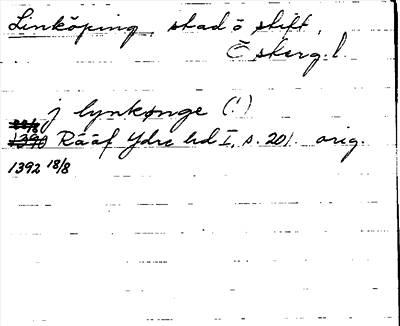 Linköping, stad ö stift,
Ö sterg. l.
j lynkønge (!)
Rääf Ydre hd I, s. 201. orig.
1392 18/8